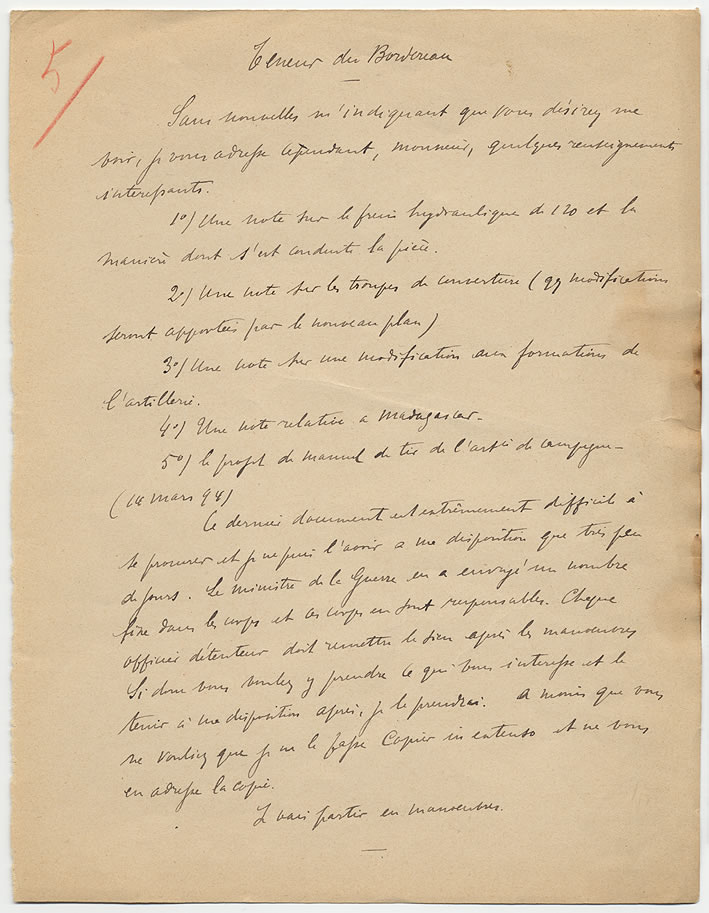 5
Teneur du Bordereau
Sans nouvelles m'indiquant que vous désirez me
voir, je vous adresse cependant, monsieur, quelques renseignements
intéressants.
1º) Une note sur le frein hydraulique de 120 et la
manière dont s'est conduite la pièce.
2º) Une note sur les troupes de couverture (qq modifications
seront apportées par le nouveau plan)
3º) Une note sur une modification aux formations de
l'artillerie.
4º) Une note relative a Madagascar -
5º) le projet de manuel de tir de l'artie de campagne -
(14 mars 94)
Ce dernier document est extrêmement difficile à
se procurer et je ne puis l'avoir a ma disposition que très peu
de jours. Le ministre de la Guerre en a envoyé un nombre
fixe dans les corps et ces corps en sont responsables. Chaque
officier détenteur doit remettre le sien après les manoeuvres
Si donc vous voulez y prendre ce qui vous intéresse et le
tenir à ma disposition après, je le prendrai. A moins que vous
ne vouliez que je ne le fasse copier in extenso et ne vous
en adresse la copie.
Je vais partir en manoeuvres.